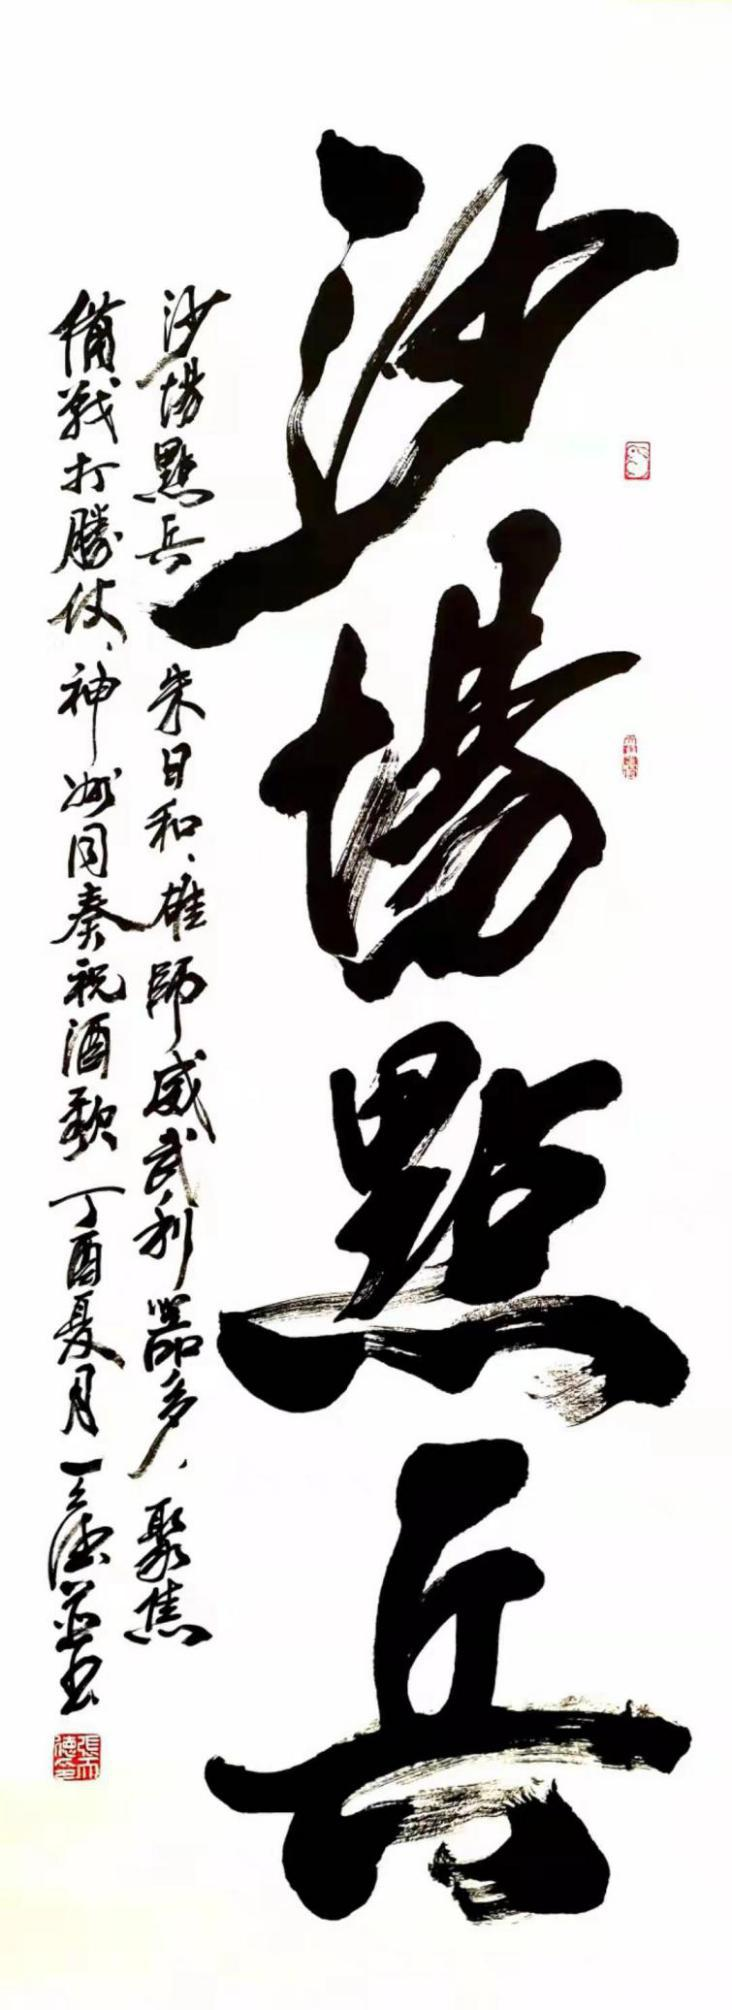 沙場點兵
沙場點兵 朱日和、雄師威武利器多，聚焦
備戰打勝仗、神州同奏祝酒歌 丁酉夏月 德 書